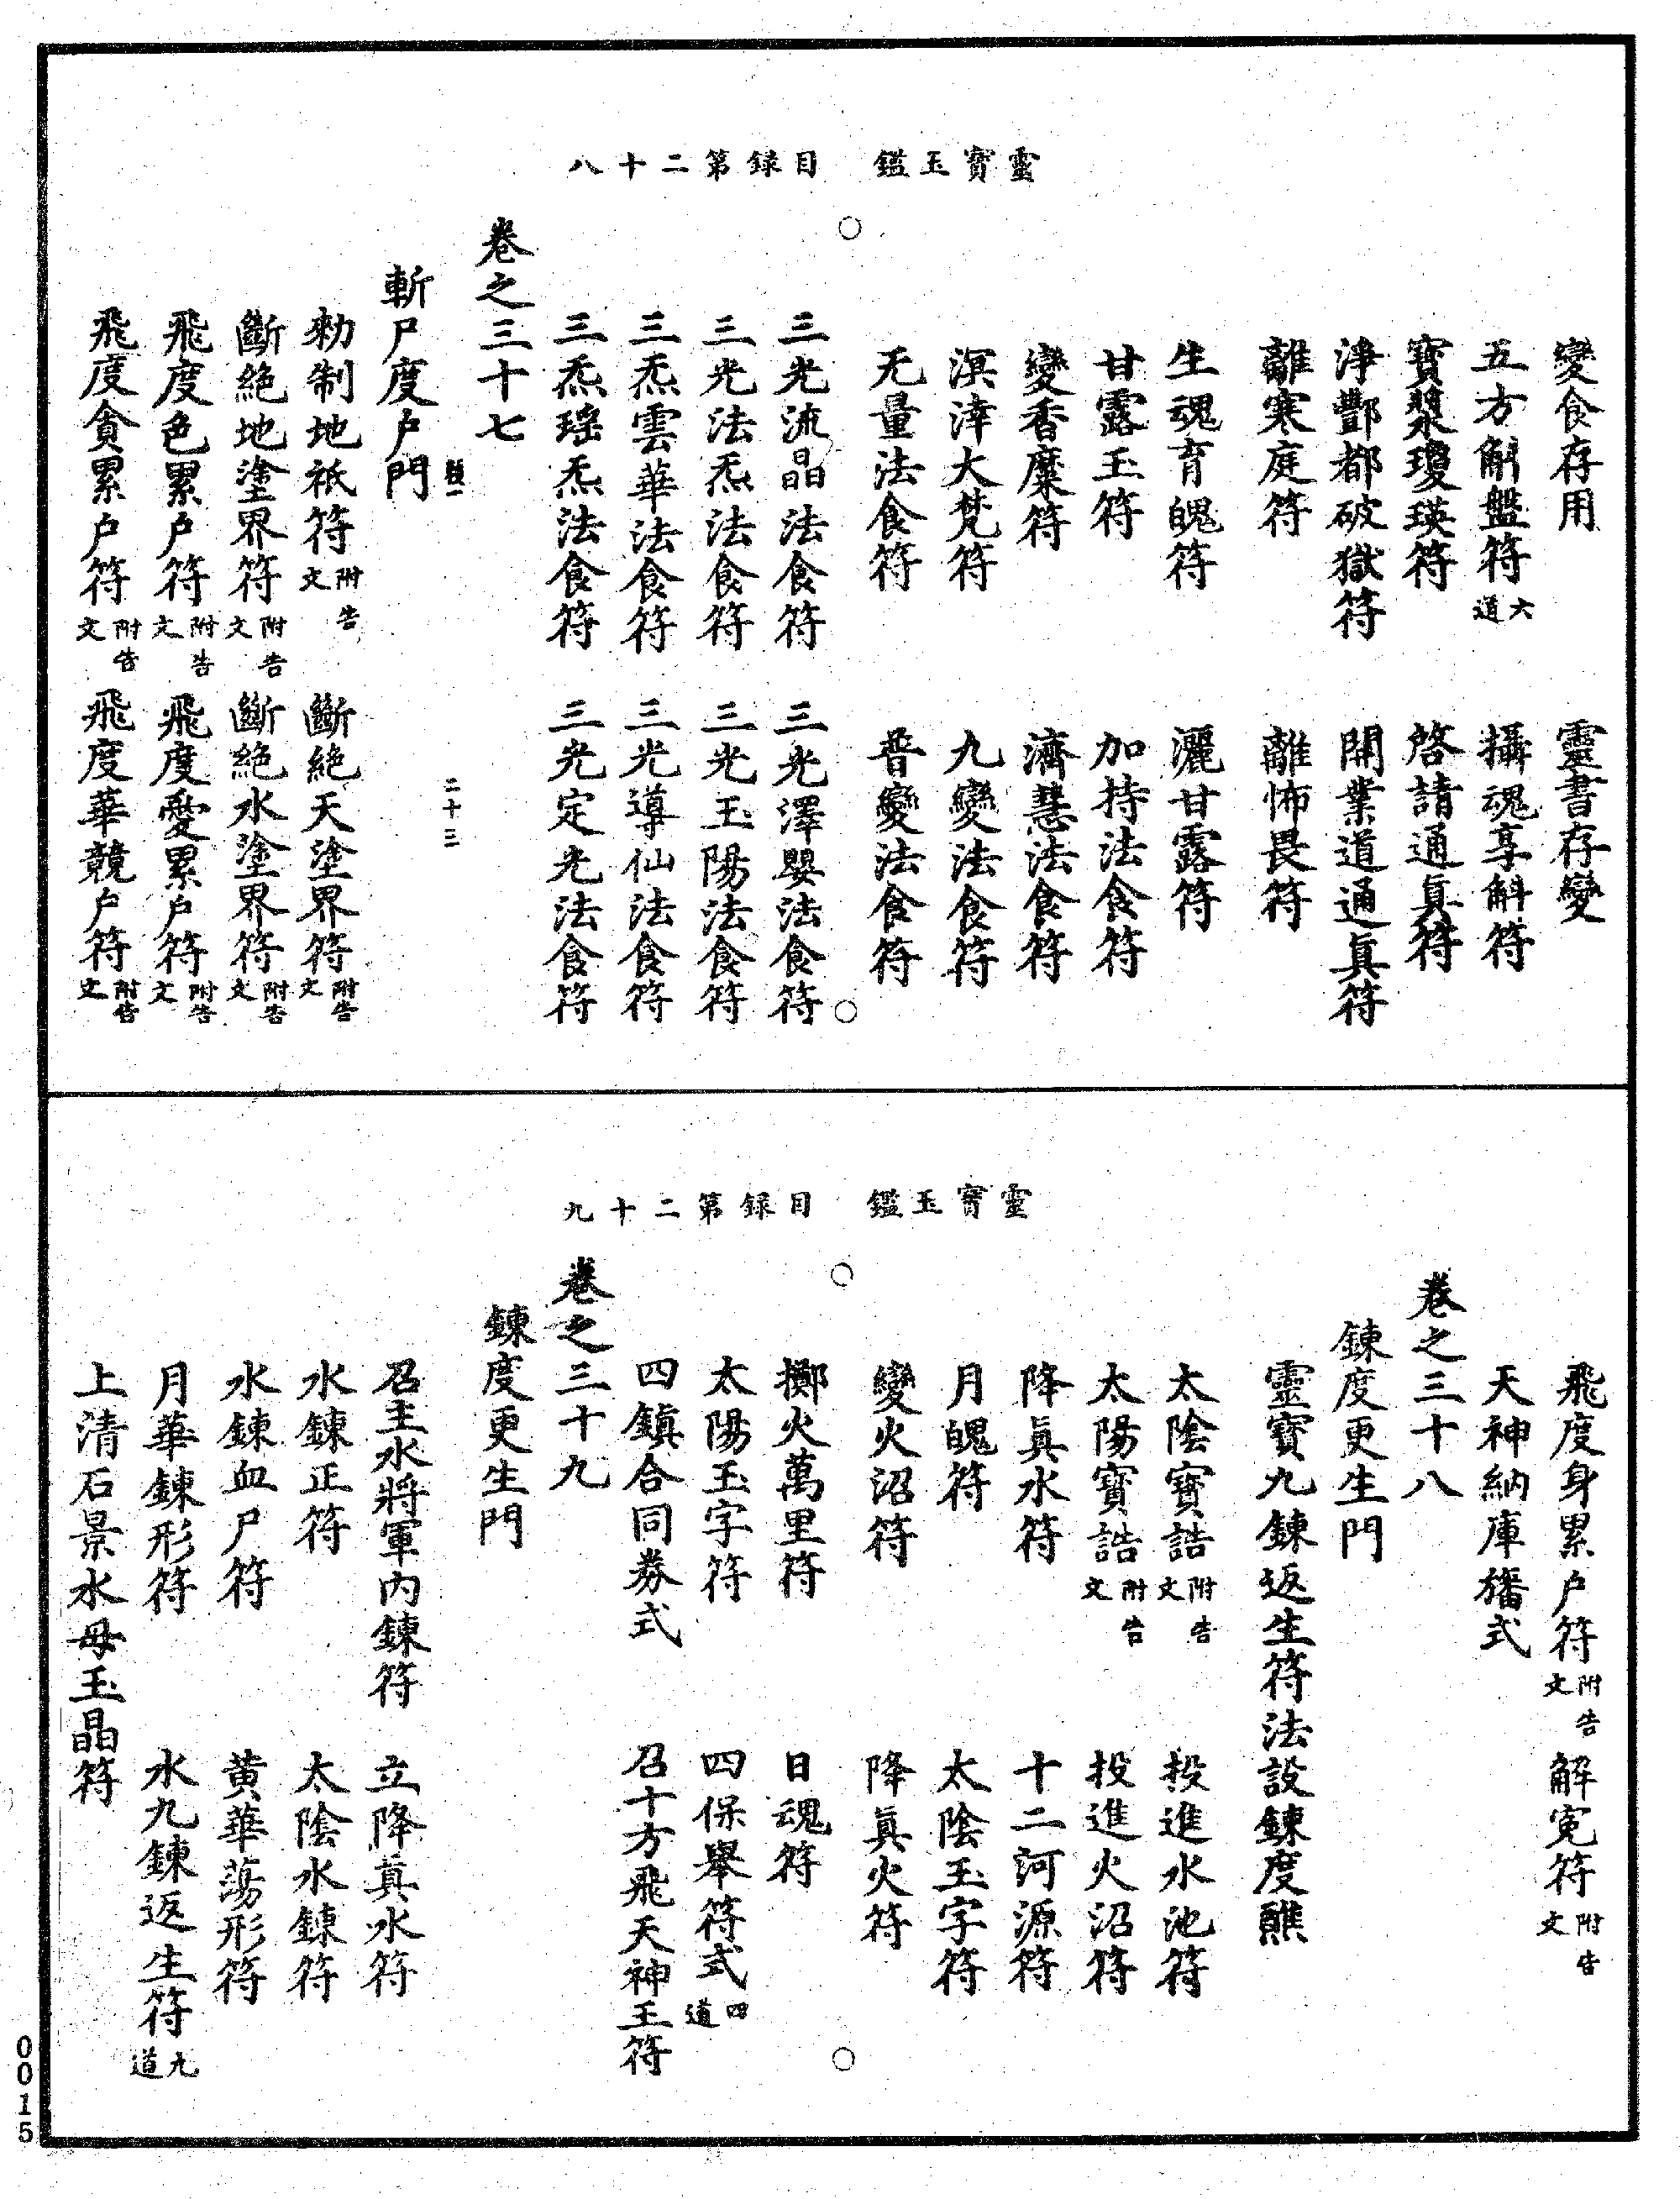 靈寶玉鑑　目錄第二十八
變食存用　靈書存變
五方斛盤符六道　攝魂享斛符
寶漿瓊瑛符　啓請通眞符
淨酆都破獄符　開業道通眞符
離寒庭符　離怖畏符
生魂育魄符　灑甘露符
甘露玉符　加持法食符
變香糜符　濟慧法食符
溟涬大梵符　九變法食符
无量法食符　普變法食符
三光流晶法食符　三光澤嬰法食符
三光法炁法食符　三光玉陽法食符
三炁雲華法食符　三光導仙法食符
三炁瑤炁法食符　三光定光法食符
卷之三十七
二十三
斬尸度户門
勑制地祇符附告文　斷絶天塗界符附告文
斷絶地塗界符附告文　斷絶水塗界符附告文
飛度色累户符附告文　飛度愛累户符附告文
飛度貪累户符附告文　飛度華競户符附告文
靈寶玉鑑　目錄第二十九
飛度身累户符附告文　解寃符附告文
天神納庫旛式
卷之三十八
鍊度更生門
靈寶九鍊返生符法設鍊度醮
太陰寶誥附告文　投進水池符
太陽寶誥附告文　投進火沼符
降眞水符　十二河源符
月魄符　太陰玉字符
變火沼符　降眞火符
擲火萬里符　日魂符
太陽玉字符　四保舉符式四道
四鎮合同券式　召十方飛天神王符
卷之三十九
鍊度更生門
召主水將軍內鍊符　立降真水符
水鍊正符　太陰水鍊符
水鍊血尸符　黃華蕩形符
月華鍊形符　水九鍊返生符九道
上清石景水母玉晶符
0015